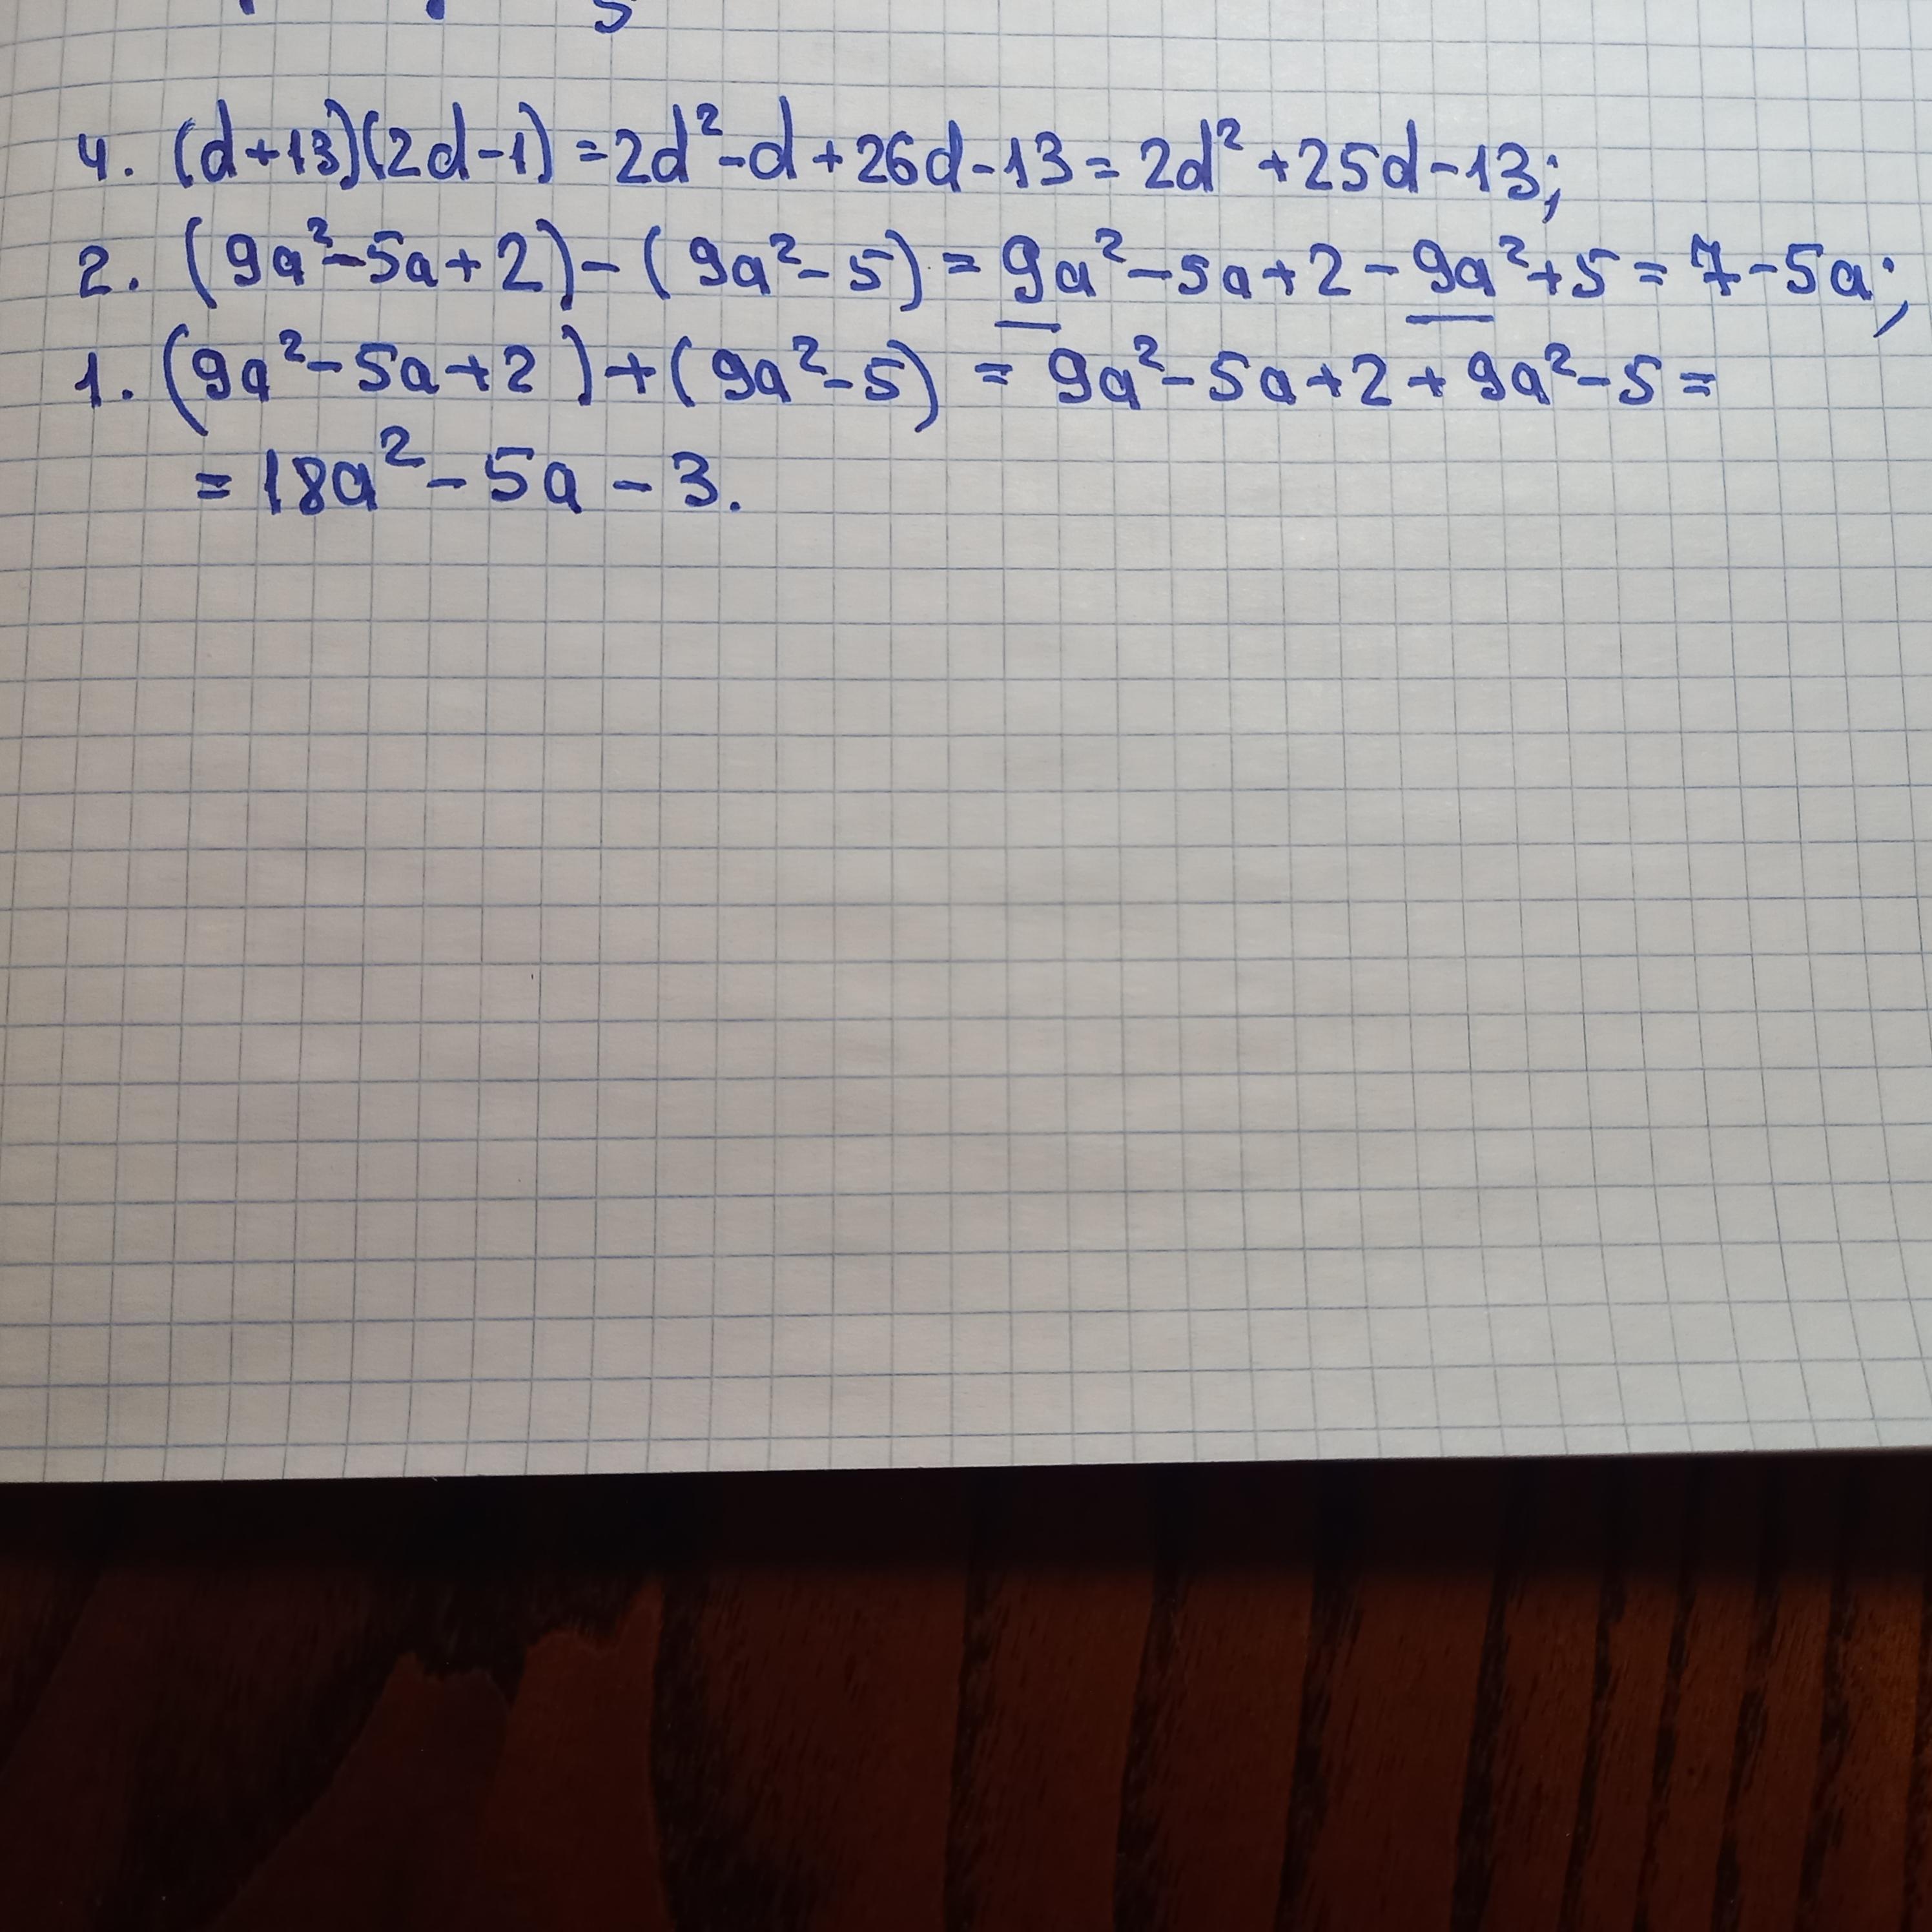 4. (d+13)(2d-1) = 2d²-d+26d-13 = 2d²+25d-13;
2. (9a²-5a+2)-(9a²-5) = 9a²-5a+2-9a²+5 = 7-5a;
1. (9a²-5a+2)+(9a²-5) = 9a²-5a+2+9a²-5 =
= 18a²-5a-3.